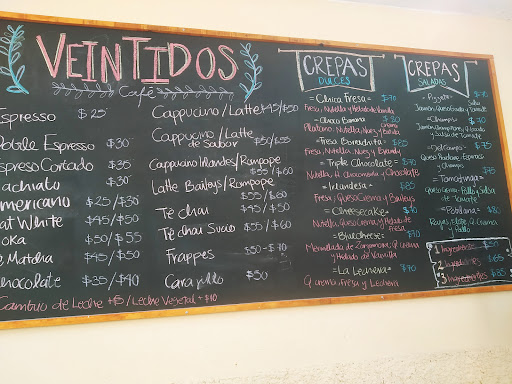 VEINTIDOS
Café
Espresso $25
Doble Espresso $30
Espreso Cortado $35
Machiato $30
Americano $25/$30
Flat White $45/$50
Moka $50/$55
Matcha $45/$50
Chocolate $35/$40
Cambio de Leche +$5 / Leche Vegetal +$10
Cappucino/Latte $45/$50
Cappucino/Latte
de Sabor $50/$55
Cappuccino Irlandes/Rompope
$55/$60
Latte Baileys/Rompope
$55/$60
Té chai $45/$50
Té chai Sucio $55/$60
Frappes $50-$70
Carajillo $50
CREPAS
DULCES
-Chica Fresa= $70
Fresa, Nutella y Helado de Vainilla
-Chaca Banana= $80
Platano, Nutella, Nuez y
-Fresa Borrachita= $85
Fresa, Nutella, Nuez y
-Triple Chocolate= $70
Nutella, H. Chocolate y Chocolate
-Irlandesa= $85
Fresa, Queso Crema y Baileys
-Cheesecake=
Nutella, Queso Crema y Helado de
Fresa
-Bluecheese= $70
Mermelada de Zarzamora, Q. Crema
y Helado de Vainilla
-La Lechera= $70
Q. crema, Fresa y Lechera
CREPAS
SALADAS
$70
Jamón, Queso
Tomate
-Champi= $75
Jamón, Champiñones, Q. Oaxaca
y Salsa de Tomate
$75
y Champis
$75
Queso Crema, Pollo y Salsa
de Tomate
-Poblana= $80
Rajas, Q. Crema
y Pollo
1 Ingrediente $50
2 Ingredientes $65
3 Ingredientes $85